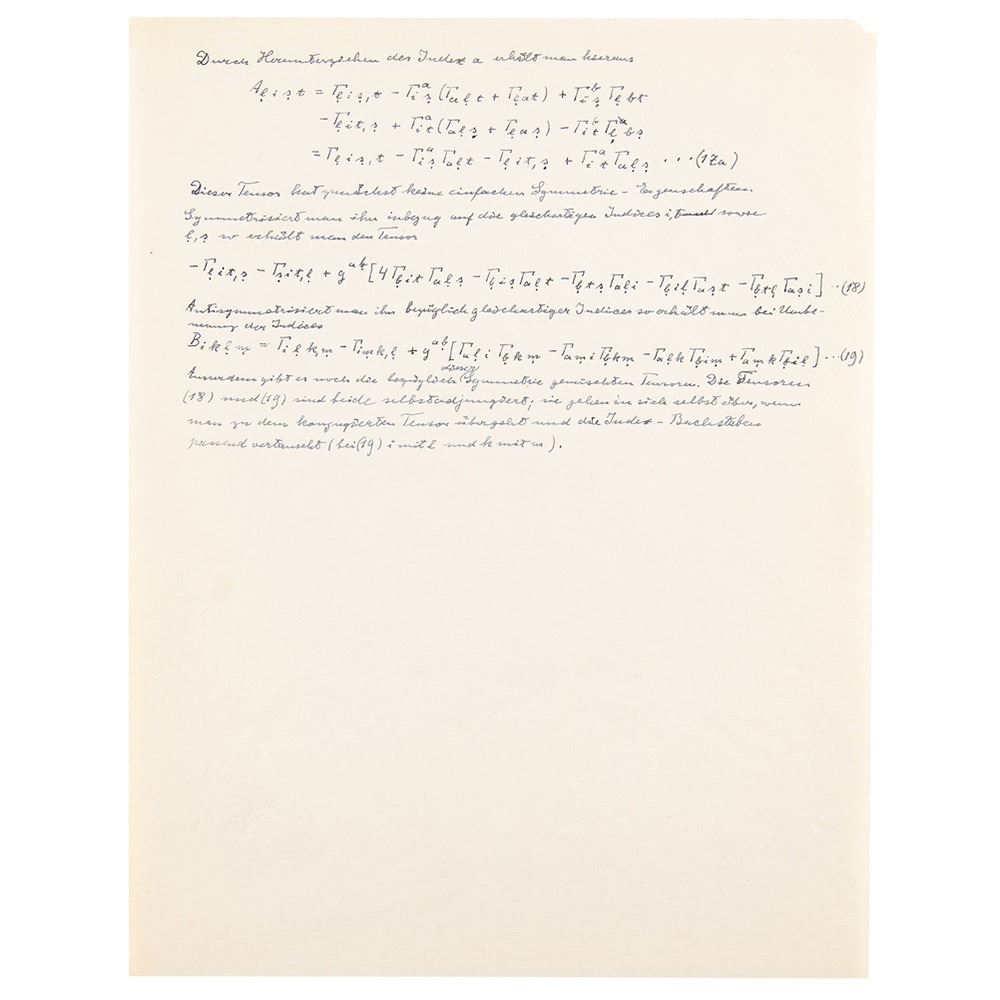 Durch Herunterziehen des Index a erhält man hieraus
A_ḷiṣt = Γ_ḷiṣ,t − Γ_iṣ^a (Γ_aḷt + Γ_ḷat) + Γ_iṣ^b Γ_ḷbt
− Γ_ḷit,ṣ + Γ_it^a (Γ_aḷṣ + Γ_ḷaṣ) − Γ_it^b Γ_ḷbṣ
= Γ_ḷiṣ,t − Γ_iṣ^a Γ_aḷt − Γ_ḷit,ṣ + Γ_it^a Γ_aḷṣ ···(17a)
Dieser Tensor hat zunächst keine einfachen Symmetrie-Eigenschaften.
Symmetrisiert man ihn inbezug auf die gleichartigen Indices i,t sowie
ḷ,ṣ so erhält man den Tensor
−Γ_ḷit,ṣ − Γ_ṣit,ḷ + g^aḅ [4Γ_ḅit Γ_aḷṣ − Γ_ḅiṣ Γ_aḷt − Γ_ḅtṣ Γ_aḷi − Γ_ḅiḷ Γ_aṣt − Γ_ḅtḷ Γ_aṣi] ··(18)
Antisymmetrisiert man ihn bezüglich gleichartiger Indices so erhält man bei Umbe-
nennung der Indices
B_ikḷṃ = Γ_iḷk,ṃ − Γ_iṃk,ḷ + g^aḅ [Γ_aḷi Γ_ḅkṃ − Γ_aṃi Γ_ḅkṃ − Γ_aḷk Γ_ḅiṃ + Γ_aṃk Γ_ḅiḷ] ··(19)
Ausserdem gibt es noch die bezüglich dieser Symmetrie gemischten Tensoren. Die Tensoren
(18) und (19) sind beide selbstadjungiert; sie gehen in sich selbst über, wenn
man zu dem konjugierten Tensor übergeht und die Index-Buchstaben
passend vertauscht (bei (19) i mit l und k mit m).